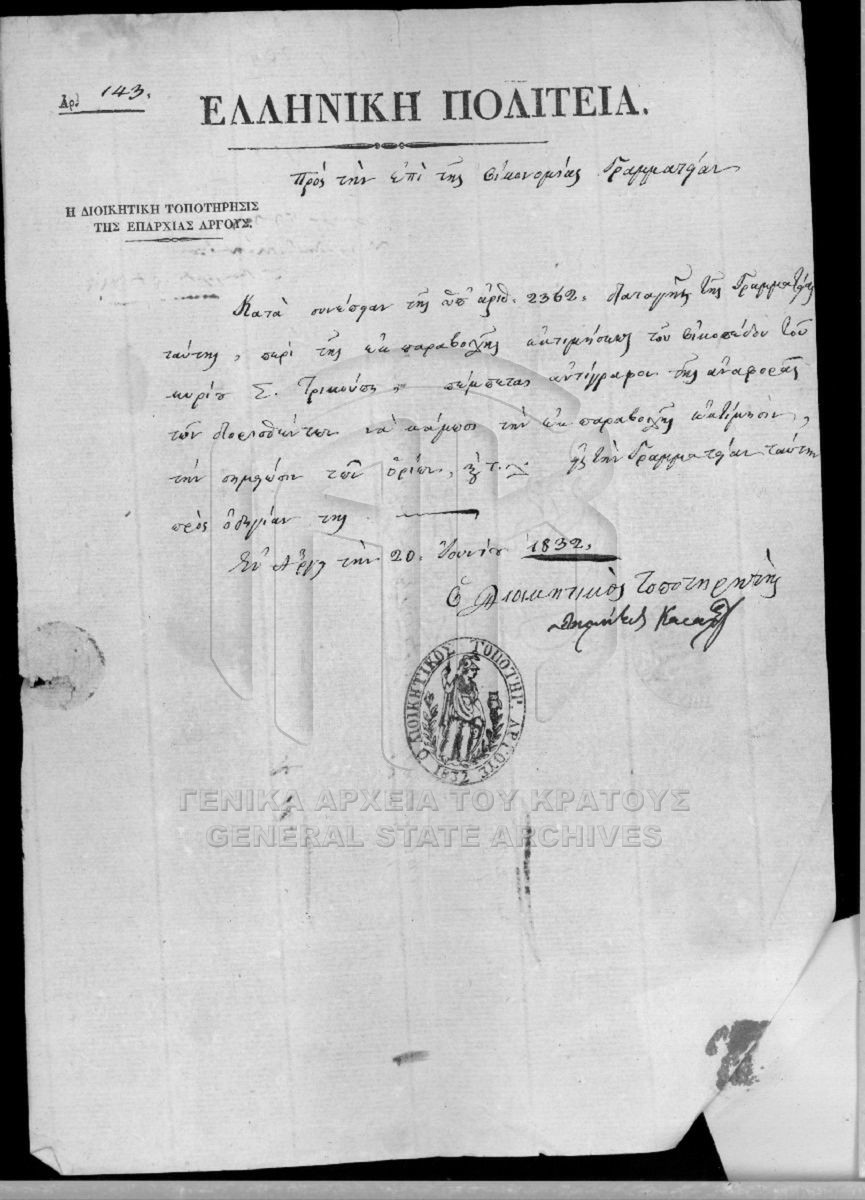 Ἀρ. 143.
ΕΛΛΗΝΙΚΗ ΠΟΛΙΤΕΙΑ.
Πρὸς τὴν ἐπὶ τῆς Οἰκονομίας Γραμματείαν
Η ΔΙΟΙΚΗΤΙΚΗ ΤΟΠΟΤΗΡΗΣΙΣ
ΤΗΣ ΕΠΑΡΧΙΑΣ ΑΡΓΟΥΣ.
Κατὰ συνέπειαν τῆς ὑπ' ἀριθ. 2362. διαταγῆς τῆς Γραμματείας
ταύτης, περὶ τῆς ἐκ παραβολῆς ἐκτιμήσεως τοῦ οἰκοπέδου τοῦ
κυρίου Σ. Τρικούπη, πέμπεται ἀντίγραφον τῆς ἀναφορᾶς
τῶν διορισθέντων νὰ κάμωσι τὴν ἐκ παραβολῆς ἐκτίμησιν,
τὴν σημείωσιν τῶν ὁρίων, εἰς τὴν Γραμματείαν ταύτην
πρὸς ὁδηγίαν της
Ἐν Ἄργει τὴν 20. Ἰουνίου 1832.
Ὁ Διοικητικὸς Τοποτηρητὴς
Ο ΔΙΟΙΚΗΤΙΚΟΣ ΤΟΠΟΤΗΡ. ΑΡΓΟΥΣ
1832
ΓΕΝΙΚΑ ΑΡΧΕΙΑ ΤΟΥ ΚΡΑΤΟΥΣ
GENERAL STATE ARCHIVES